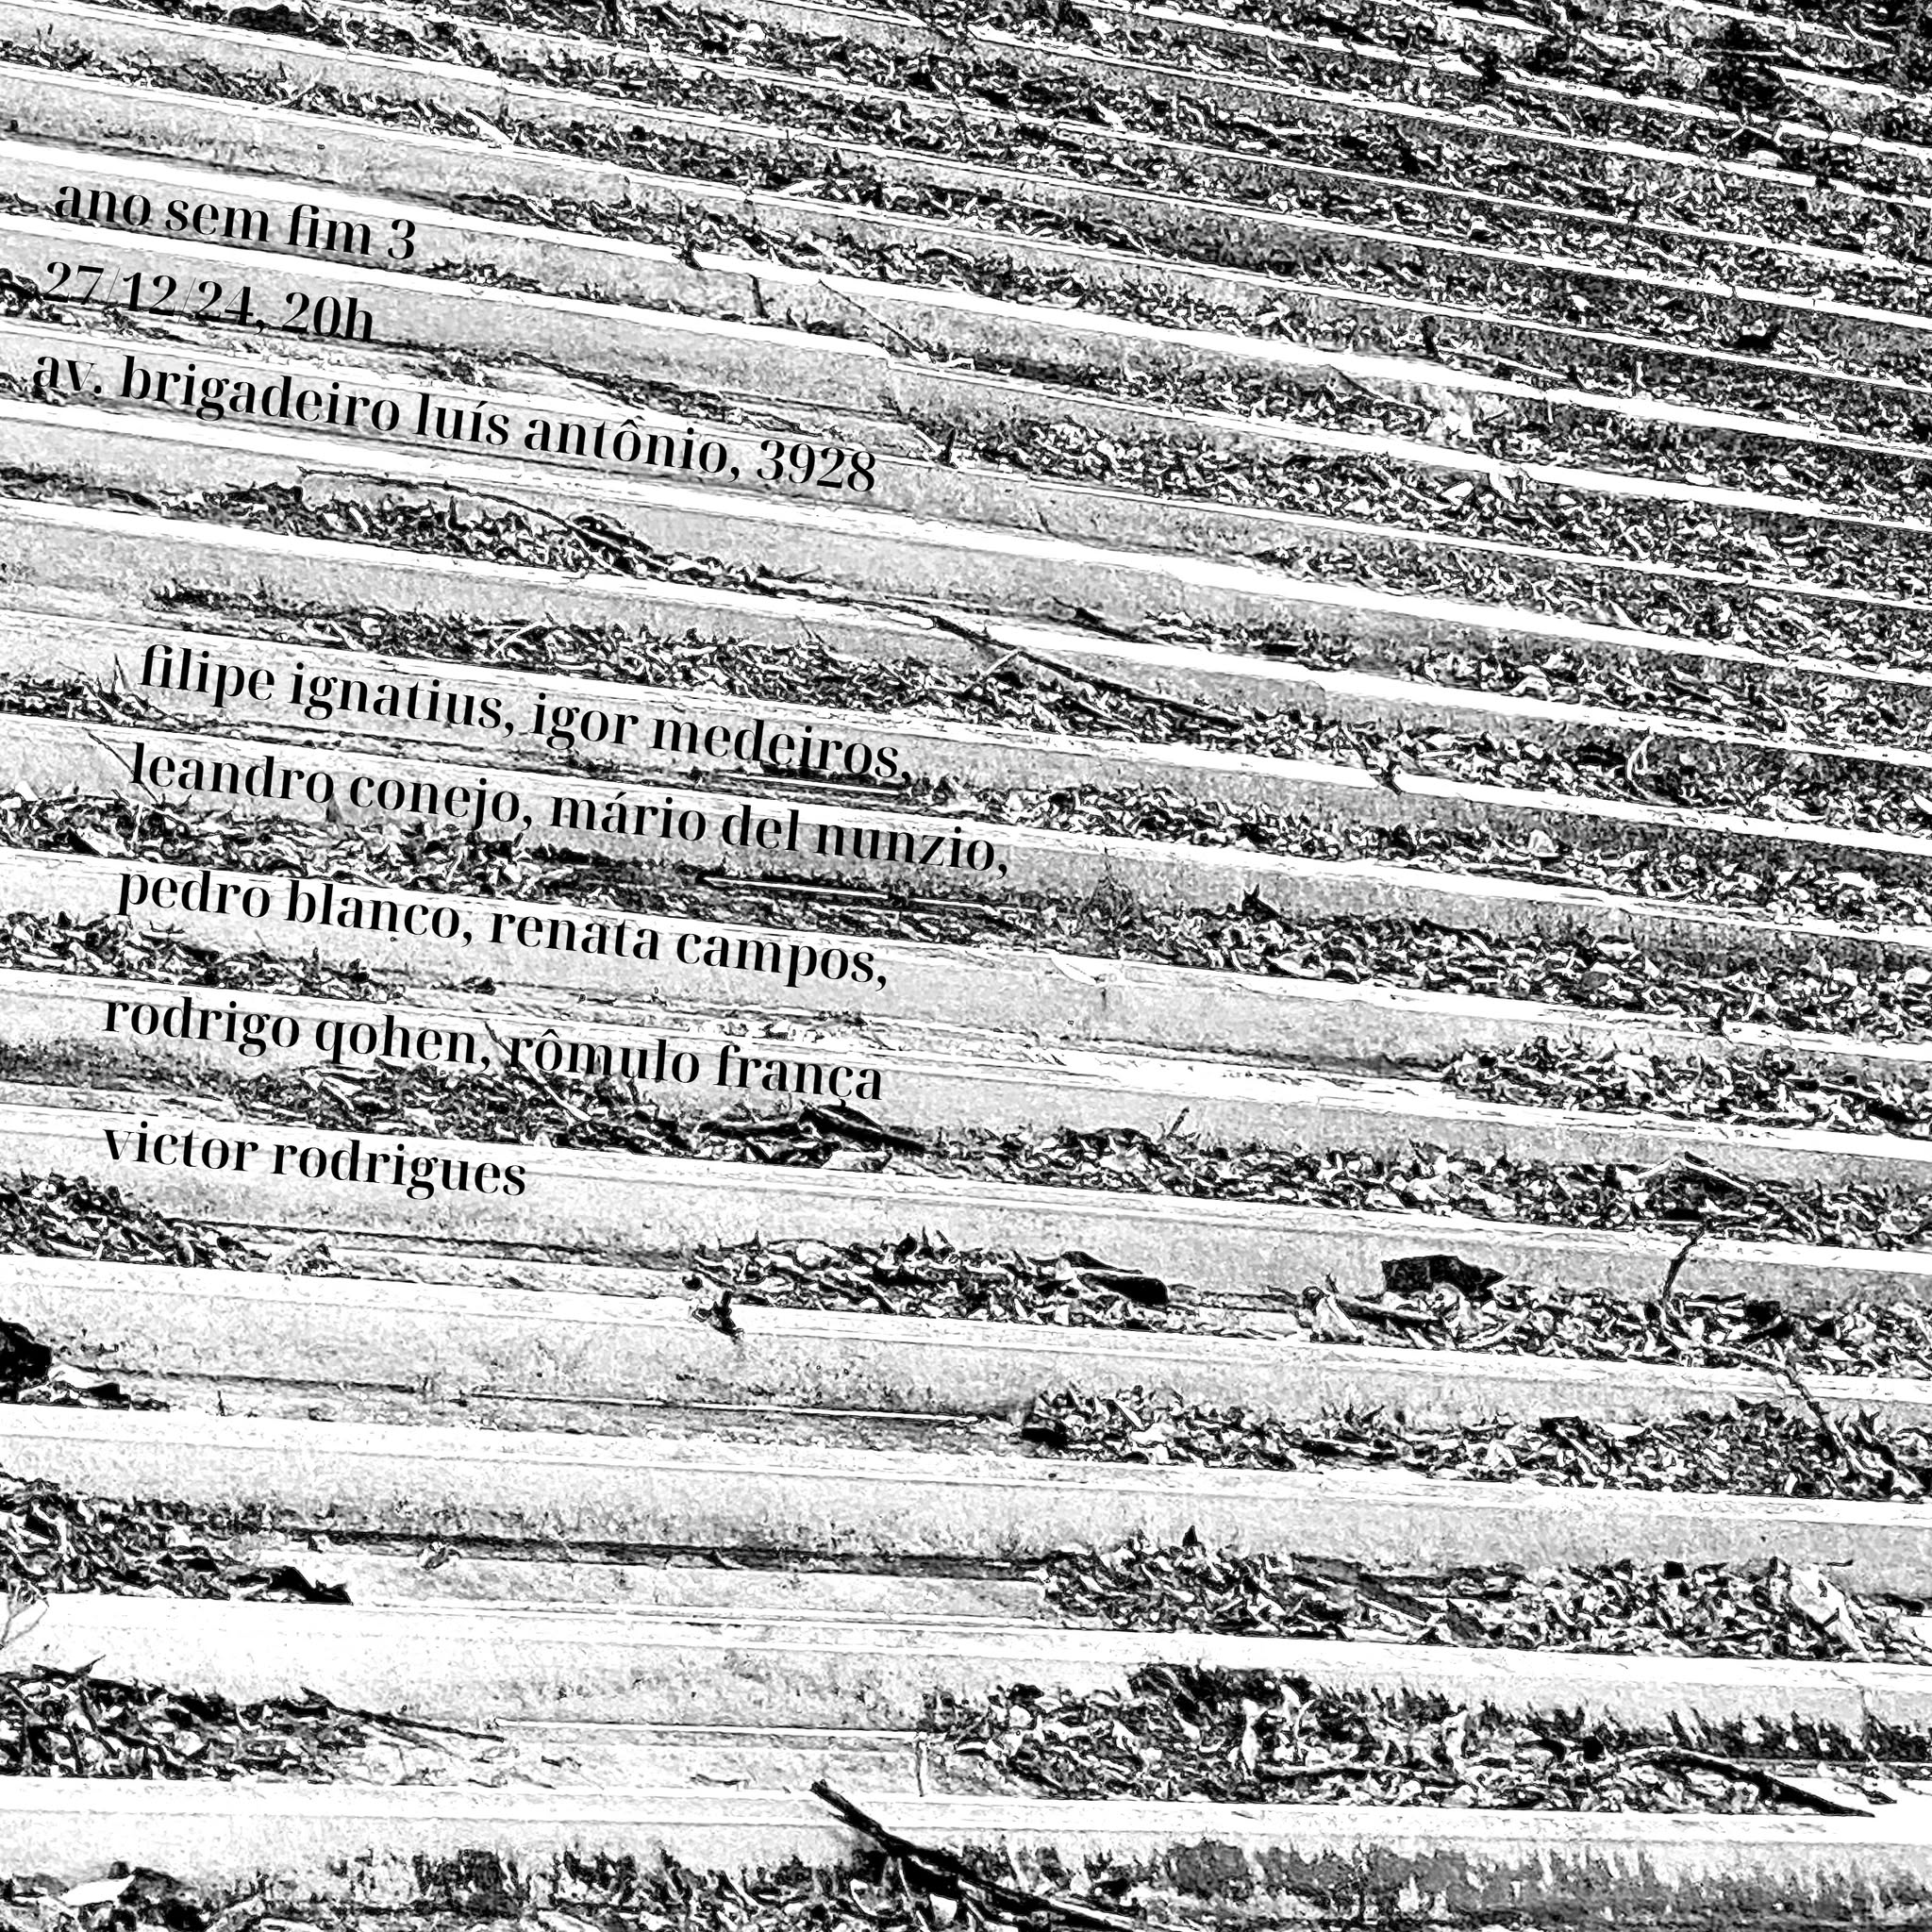 ano sem fim 3
27/12/24, 20h
av. brigadeiro luís antônio, 3928
filipe ignatius, igor medeiros,
leandro conejo, mário del nunzio,
pedro blanco, renata campos,
rodrigo qohen, rômulo frança
victor rodrigues